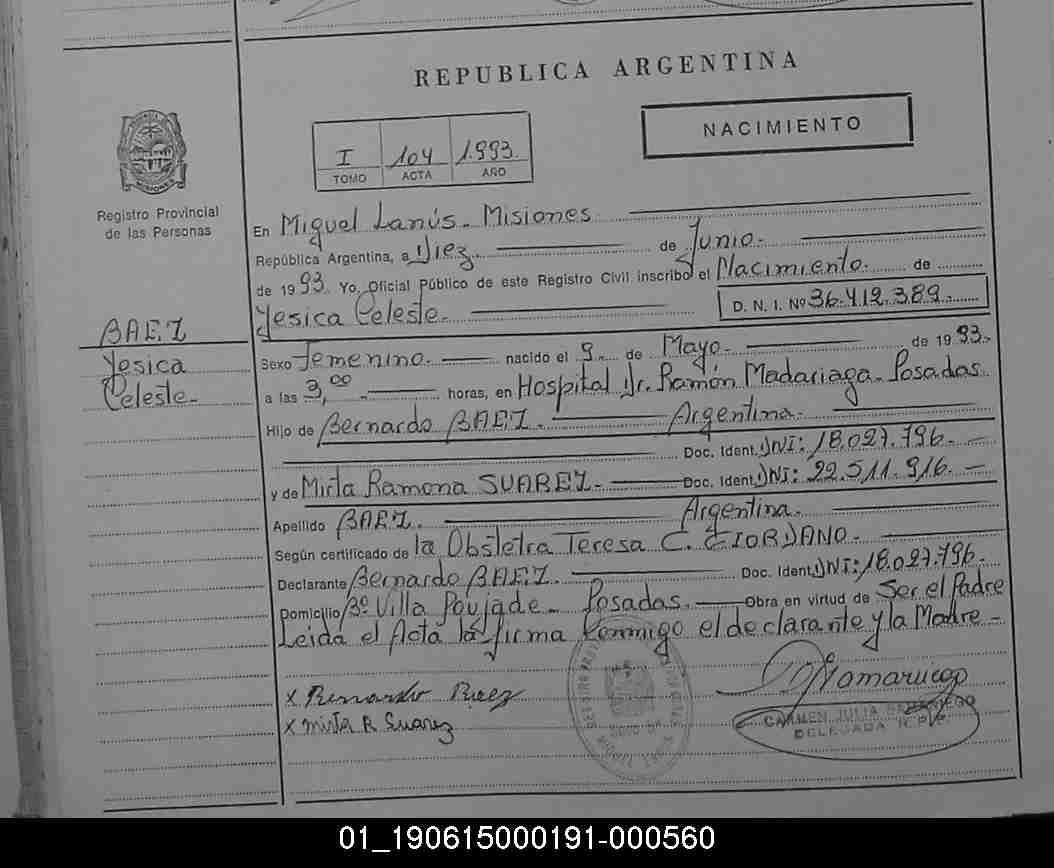 REPUBLICA ARGENTINA
NACIMIENTO
I 104 1.993.
TOMO ACTA AÑO
Registro Provincial
de las Personas
BAEZ
Yesica
Celeste.
En Miguel Lanús. Misiones
República Argentina, a Diez. de Junio.
de 1993. Yo, Oficial Público de este Registro Civil inscribo el Nacimiento. de
Yesica Celeste. D. N. I. Nº 36.412.389.
Sexo Femenino. nacido el 9. de Mayo. de 1993.
a las 3,00 horas, en Hospital Dr. Ramón Madariaga. Posadas
Hijo de Bernardo BAEZ. Argentina.
Doc. Ident. DNI: 18.027.796.
y de Mirta Ramona SUAREZ. Doc. Ident. DNI: 22.511.916.
Apellido BAEZ. Argentina.
Según certificado de la Obstetra Teresa C. GIORDANO.
Declarante Bernardo BAEZ. Doc. Ident. DNI: 18.027.796.
Domicilio Bº Villa Poujade. Posadas. Obra en virtud de Ser el Padre
Leida el Acta la firma Conmigo el declarante y la Madre.
x Bernardo Baez
x Mirta R Suarez
CARMEN JULIA
DELEGADA R.P.P.
01_190615000191-000560